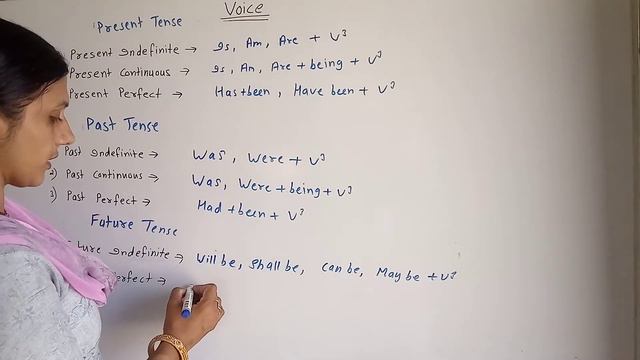 Voice
Present Tense
Present Indefinite → Is, Am, Are + V³
Present Continuous → Is, Am, Are + being + V³
Present Perfect → Has + been, Have been + V³
Past Tense
Past Indefinite → Was, Were + V³
2) Past Continuous → Was, Were + being + V³
3) Past Perfect → Had + been + V³
Future Tense
Indefinite → Will be, Shall be, Can be, May be + V³
Perfect →